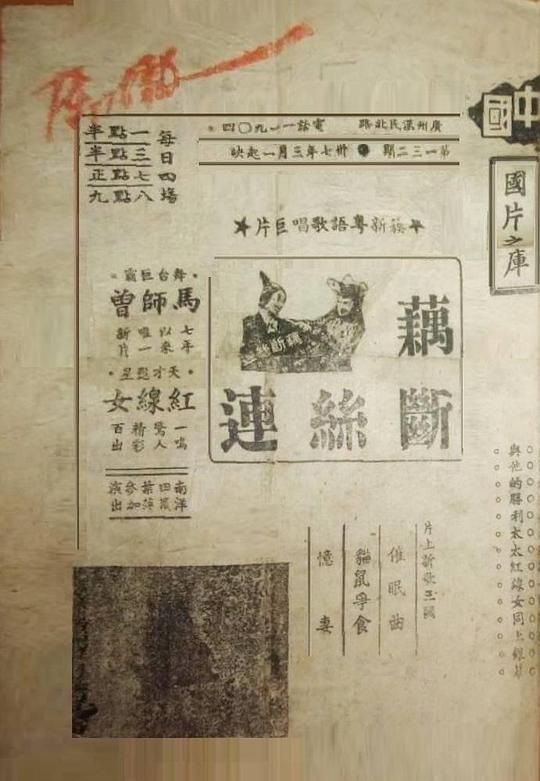 中國
國片之庫
廣州漢民北路 電話一一九〇四
第一三二期 卅七年三月一起映
每日四場
一點半
三點半
七點正
八點九
簇新粵語歌唱巨片
藕斷絲連
藕斷絲
舞台巨霸
馬師曾
七年以來唯一新片
天才艷星
紅線女
一鳴驚人精彩百出
南洋
參加演出
片上新歌三闋
催眠曲
貓鼠爭食
憶妻
與他的勝利太太紅線女同上銀幕